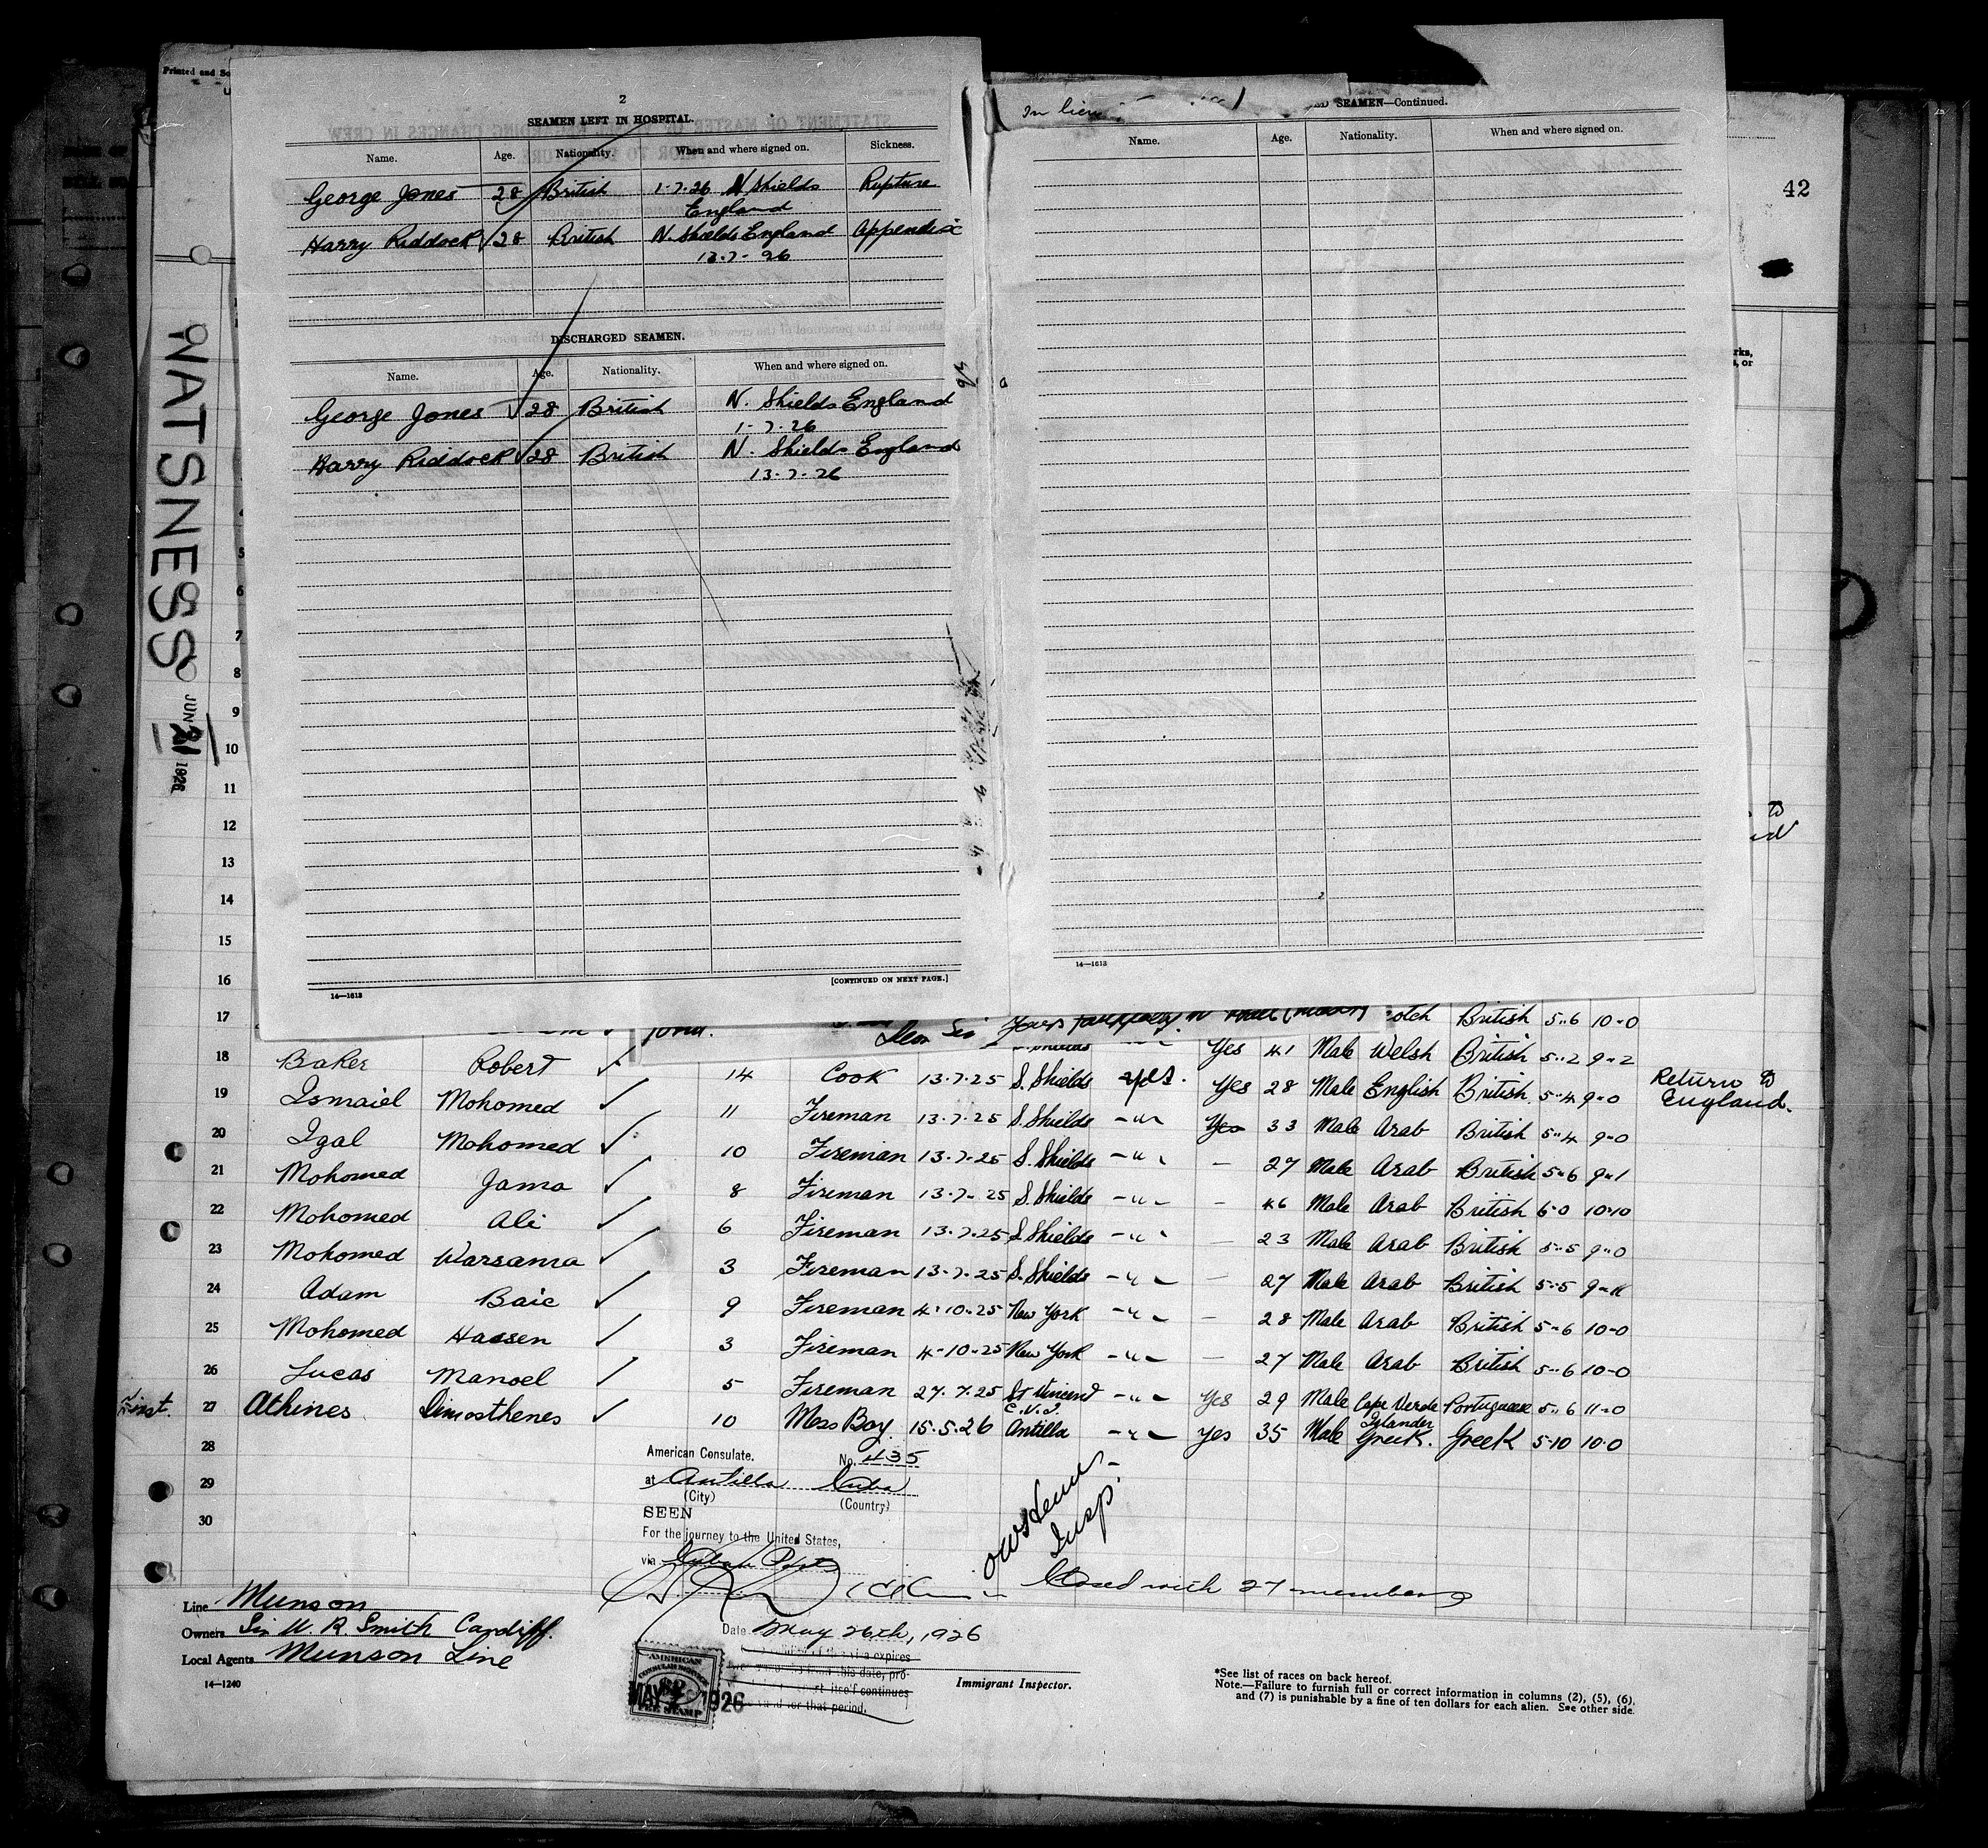 Printed and So
2
SEAMEN LEFT IN HOSPITAL.
Name. Age. Nationality. When and where signed on. Sickness.
George Jones 28 British 1-7-26 N Shields England Rupture
Harry Riddock 28 British N. Shields England 13-7-26 Appendix
DISCHARGED SEAMEN.
Name. Age. Nationality. When and where signed on.
George Jones 28 British N. Shields England
1-7-26
Harry Riddock 28 British N. Shields England
13-7-26
[CONTINUED ON NEXT PAGE.]
14—1613
In lieu
ED SEAMEN—Continued.
Name. Age. Nationality. When and where signed on.
14—1613
42
rks,
, or
WATSNESS
JUN 21 1926
5
6
7
8
9
10
11
12
13
14
15
16
17 otch British 5..6 10-0
Dear Sir Yours faithfully
18 Baker Robert Yes 41 Male Welsh British 5..2 9-2
14 Cook 13.7.25 S. Shields yes. Yes 28 Male English British 5-4 9-0 Return to England.
19 Ismaiel Mohomed 11 Fireman 13.7.25 S. Shields -"- Yes 33 Male Arab British 5-4 9-0
20 Igal Mohomed 10 Fireman 13.7.25 S. Shields -"- - 27 Male Arab British 5-6 9-1
21 Mohomed Jama 8 Fireman 13.7.25 S. Shields -"- - 46 Male Arab British 6-0 10-10
22 Mohomed Ali 6 Fireman 13.7.25 S. Shields -"- - 23 Male Arab British 5-5 9-0
23 Mohomed Warsama 3 Fireman 13.7.25 S. Shields -"- - 27 Male Arab British 5-5
24 Adam Baic 9 Fireman 4-10-25 New York -"- - 28 Male Arab British 5-6 10-0
25 Mohomed Hassen 3 Fireman 4-10-25 New York -"- - 27 Male Arab British 5-6 10-0
26 Lucas Manoel 5 Fireman 27.7.25 St Vincent C.V.I. -"- Yes 29 Male Cape Verde Islander Portuguese 5..6 11-0
First. 27 Athines Dimosthenes 10 Mess Boy 15.5.26 Antilla -"- Yes 35 Male Greek. Greek 5-10 10-0
28
29
30
American Consulate. No. 435
at Antilla Cuba
(City) (Country)
SEEN
For the journey to the United States,
via
Insp.
Closed with 27 members
Date May 26th, 1926
Line Munson
Owners Sir W. R. Smith Cardiff.
Local Agents Munson Line
14—1240
AMERICAN
CONSULAR SERVICE
FEE STAMP
MAY 1926
a expires
this date, pro-
itself continues
for that period.
Immigrant Inspector.
*See list of races on back hereof.
Note.—Failure to furnish full or correct information in columns (2), (5), (6),
and (7) is punishable by a fine of ten dollars for each alien. See other side.